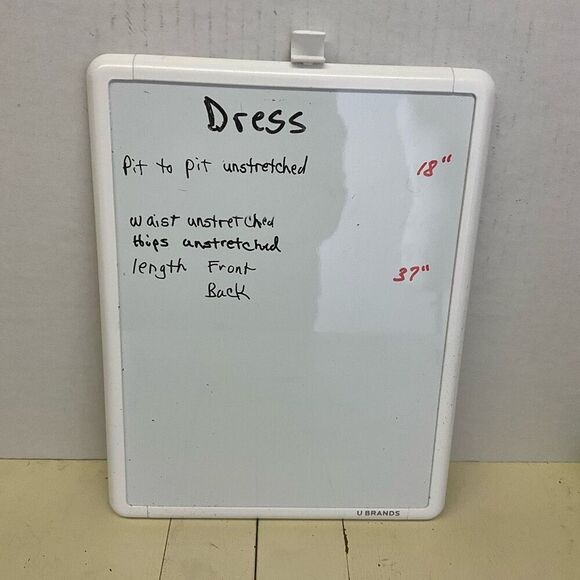 Dress
Pit to pit unstretched 18"
waist unstretched
hips unstretched
length Front 37"
Back
U BRANDS